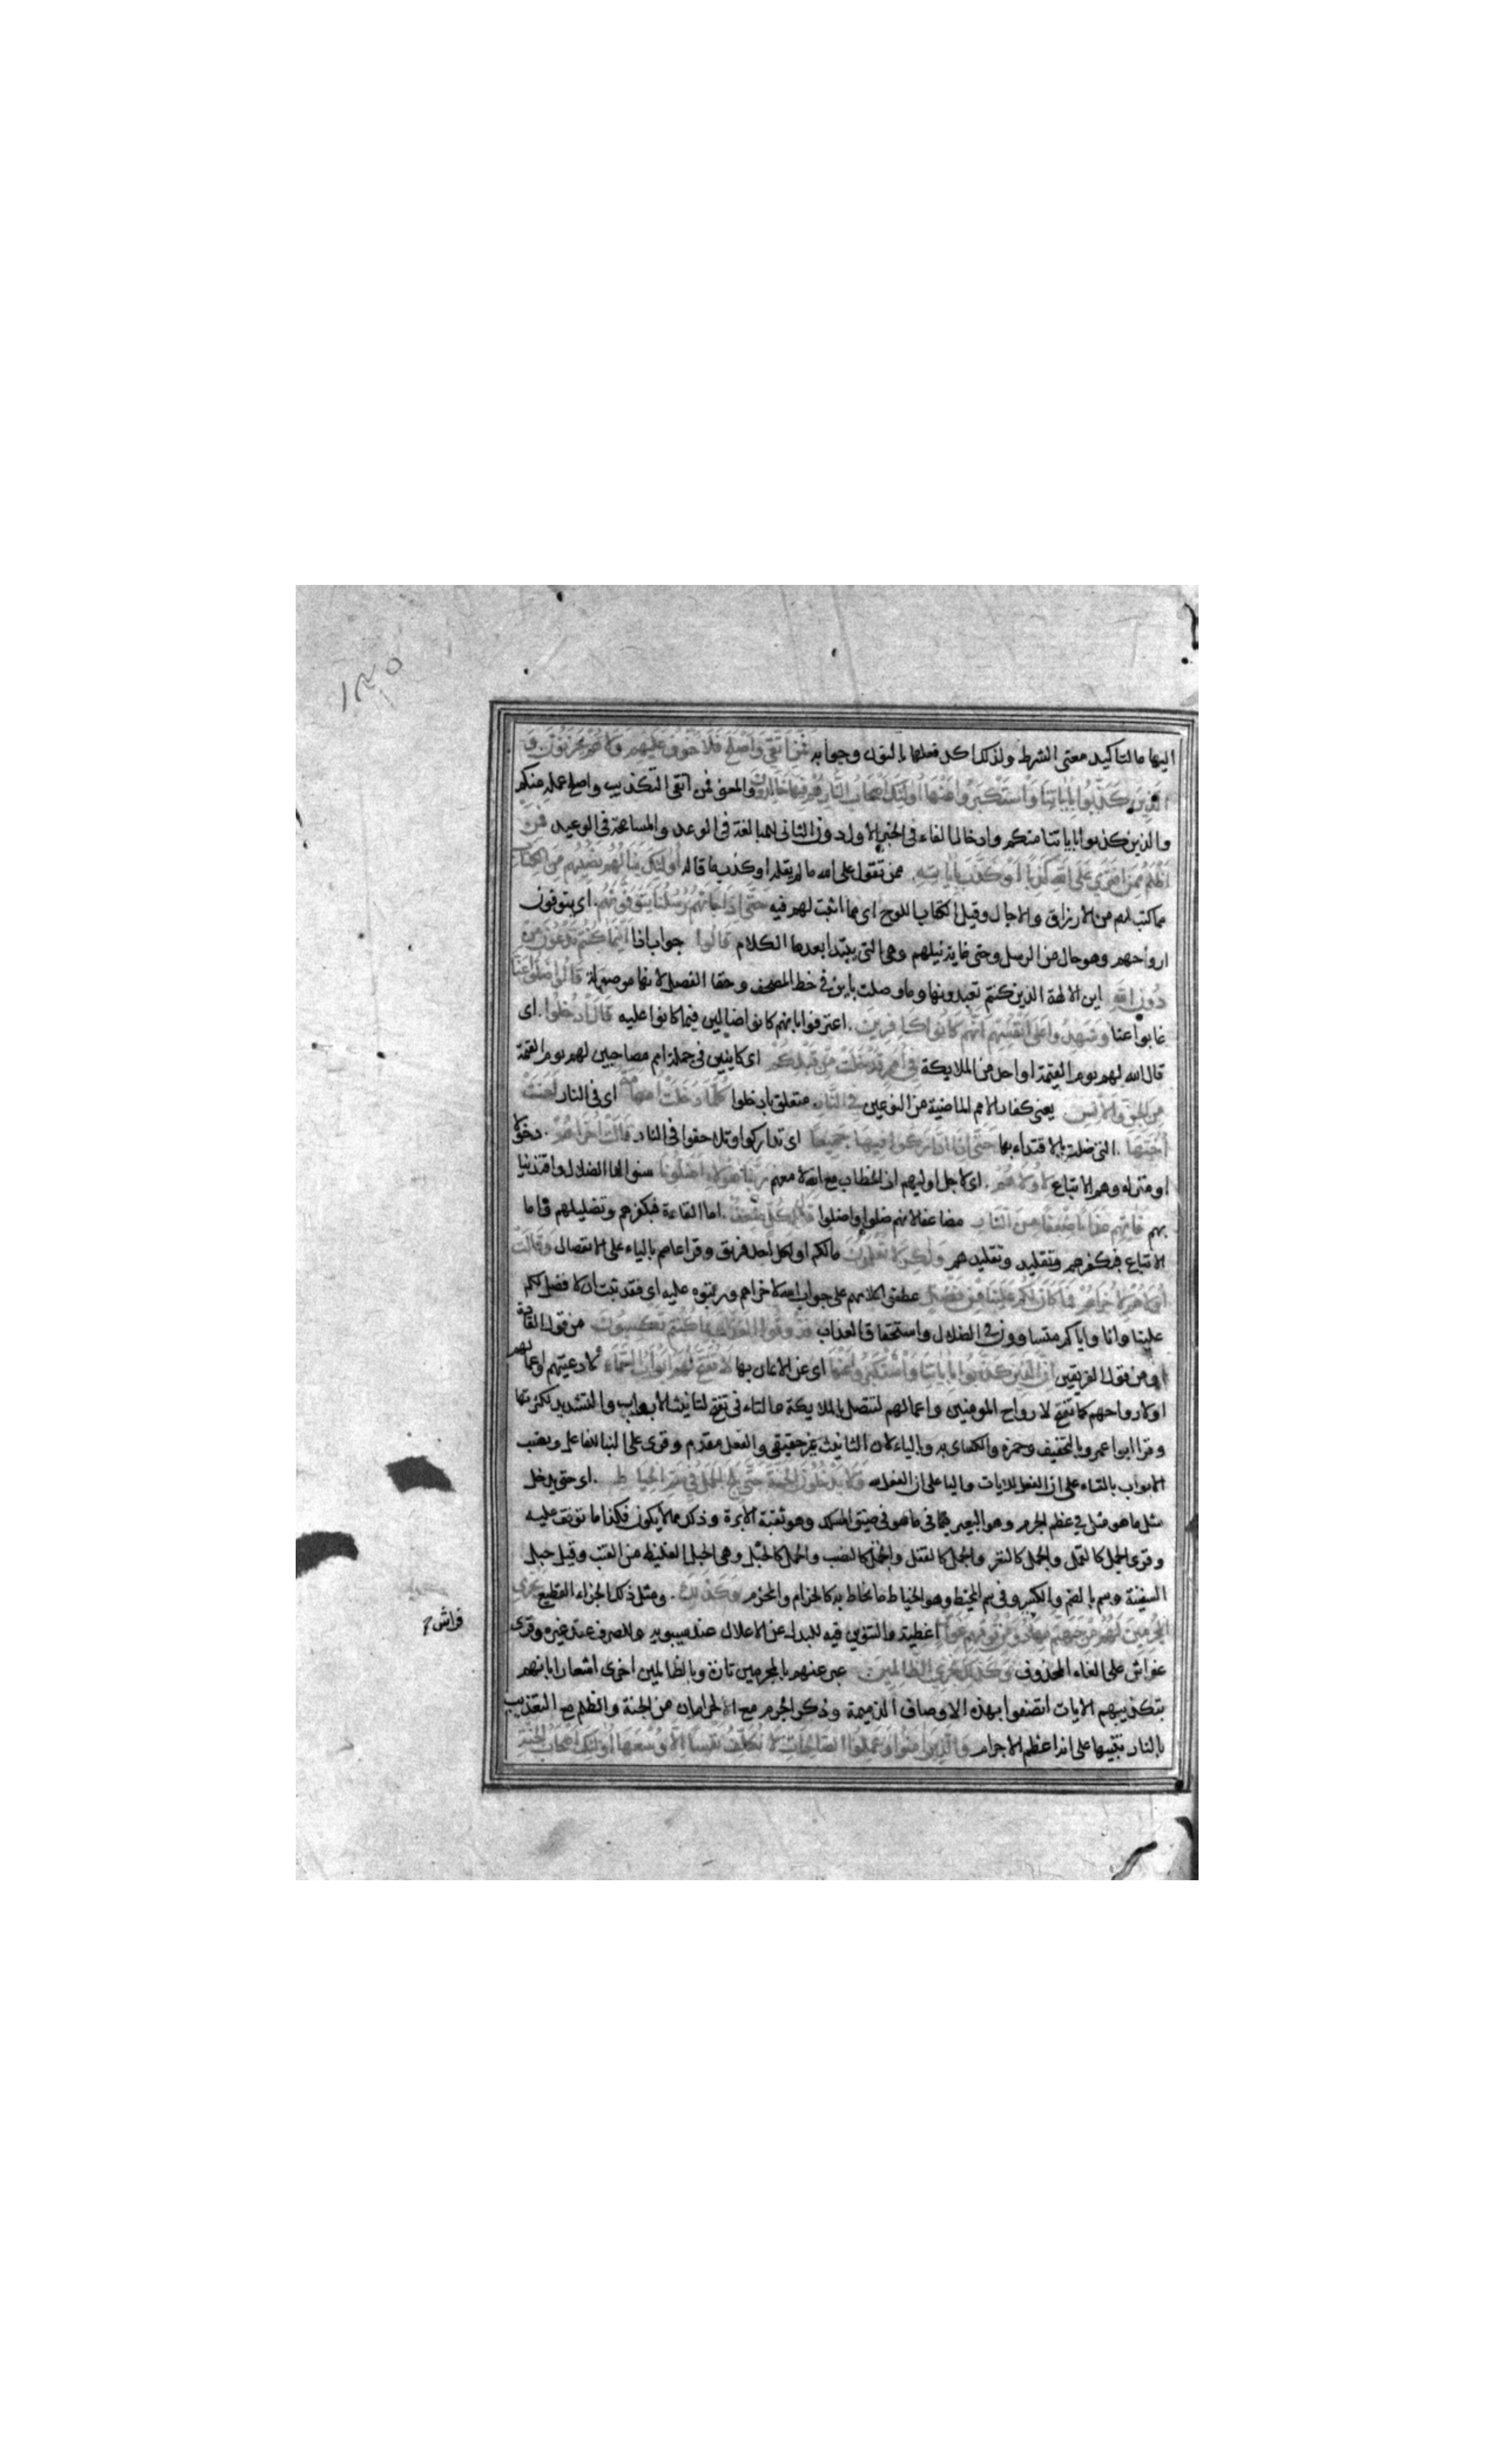 ١٣٥
اليها ما لتاكيد معنى الشرط ولذلك اكد فعلها بالنون وجوابه فمن اتقى واصلح فلا خوف عليهم ولا هم يحزنون و
الذين كذبوا باياتنا واستكبروا عنها اولئك اصحاب النار هم فيها خالدون والمعنى فمن اتقى التكذيب واصلح عمله منكم
والذين كذبوا باياتنا منكم وادخال الفاء فى الخبر الاول دون الثانى للمبالغة فى الوعد والمسامحة فى الوعيد فمن
اظلم ممن افترى على الله كذبا او كذب باياته ممن تقول على الله ما لم يقله او كذب ما قاله اولئك ينالهم نصيبهم من الكتاب
مما كتب لهم من الارزاق والاجال وقيل الكتاب اللوح اى مما اثبت لهم فيه حتى اذا جاءتهم رسلنا يتوفونهم اى يتوفون
ارواحهم وهو حال من الرسل وحتى غاية نيلهم وهى التى يبتدا بعدها الكلام قالوا جواب اذا اينما كنتم تدعون من
دون الله اين الالهة الذين كنتم تعبدونها وما وصلت باين فى خط المصحف وحقا الفصل لانها موصولة قالوا ضلوا عنا
غابوا عنا وشهدوا على انفسهم انهم كانوا كافرين اعترفوا بانهم كانوا ضالين فيما كانوا عليه قال ادخلوا اى
قال الله لهم يوم القيمة او احد من الملايكة فى امم قد خلت من قبلكم اى كاينين فى جملة امم مصاحبين لهم يوم القيمة
من الجن والانس يعنى كفار الامم الماضية من النوعين فى النار متعلق بادخلوا كلما دخلت امة اى فى النار لعنت
اختها التى ضلت بالاقتداء بها حتى اذا اداركوا فيها جميعا اى تداركوا وتلاحقوا فى النار قالت اخراهم دخولا
او منزله وهم الاتباع لاولاهم اى لاجل اوليهم اذ الخطاب مع الله لا معهم ربنا هولاء اضلونا سنوا لنا الضلال فاقتدينا
بهم فاتهم عذابا ضعفا من النار مضاعفا لانهم ضلوا واضلوا قال لكل ضعف اما القادة فبكفرهم وتضليلهم واما
الاتباع فبكفرهم وتقليدهم ولكن لا تعلمون مالكم او لكل احد فريق وقرا عاصم بالياء على الانفصال وقالت
اولاهم لاخراهم فما كان لكم علينا من فضل عطفوا كلامهم على جواب الله لاخراهم ورتبوه عليه اى فقد ثبت ان لا فضل لكم
علينا وانا واياكم متساوون فى الضلال واستحقاق العذاب فذوقوا العذاب بما كنتم تكسبون من قول القادة
او من قول الفريقين ان الذين كذبوا باياتنا واستكبروا عنها اى عن الايمان بها لا تفتح لهم ابواب السماء لادعيتهم واعمالهم
او لارواحهم كما تفتح لارواح المومنين واعمالهم لتتصل بالملايكة والتاء فى تفتح لتانيث الابواب والتشديد لكثرتها
وقرا ابو عمرو بالتخفيف وحمزة والكسائى به وبالياء لان التانيث غير حقيقى والفعل مقدم وقرى على البنا للفاعل ونصب
الابواب بالتاء على ان الفعل للايات وباليا على ان الفعل لله ولا يدخلون الجنة حتى يلج الجمل فى سم الخياط اى حتى يدخل
مثل ما هو مثل فى عظم الجرم وهو البعير فيما هو فى ضيق المسلك وهو ثقبة الابرة وذلك مما لا يكون فكذا ما توقف عليه
وقرى الجمل كالقمل والجمل كالنغر والجمل كالقفل والجمل كالنصب والجمل كالحبل وهى الحبل الغليظ من القنب وقيل حبل
السفينة وسم بالضم والكسر وفى سم المخيط وهو الخياط ما يخاط به كالحزام والمحزم وكذلك ومثل ذلك الجزاء الفظيع نجزى
المجرمين لهم من جهنم مهاد ومن فوقهم غواش اغطية والتنوين فيه للبدل عن الاعلال عند سيبويه وللصرف عند غيره وقرى
فراش
غواش على الغاء المحذوف وكذلك نجزى الظالمين عبر عنهم بالمجرمين تارة وبالظالمين اخرى اشعارا بانهم
بتكذيبهم الايات اتصفوا بهذه الاوصاف الذميمة وذكر الجرم مع الحرمان من الجنة والظلم مع التعذيب
بالنار تنبيها على انه اعظم الاجرام والذين امنوا وعملوا الصالحات لا نكلف نفسا الا وسعها اولئك اصحاب الجنة